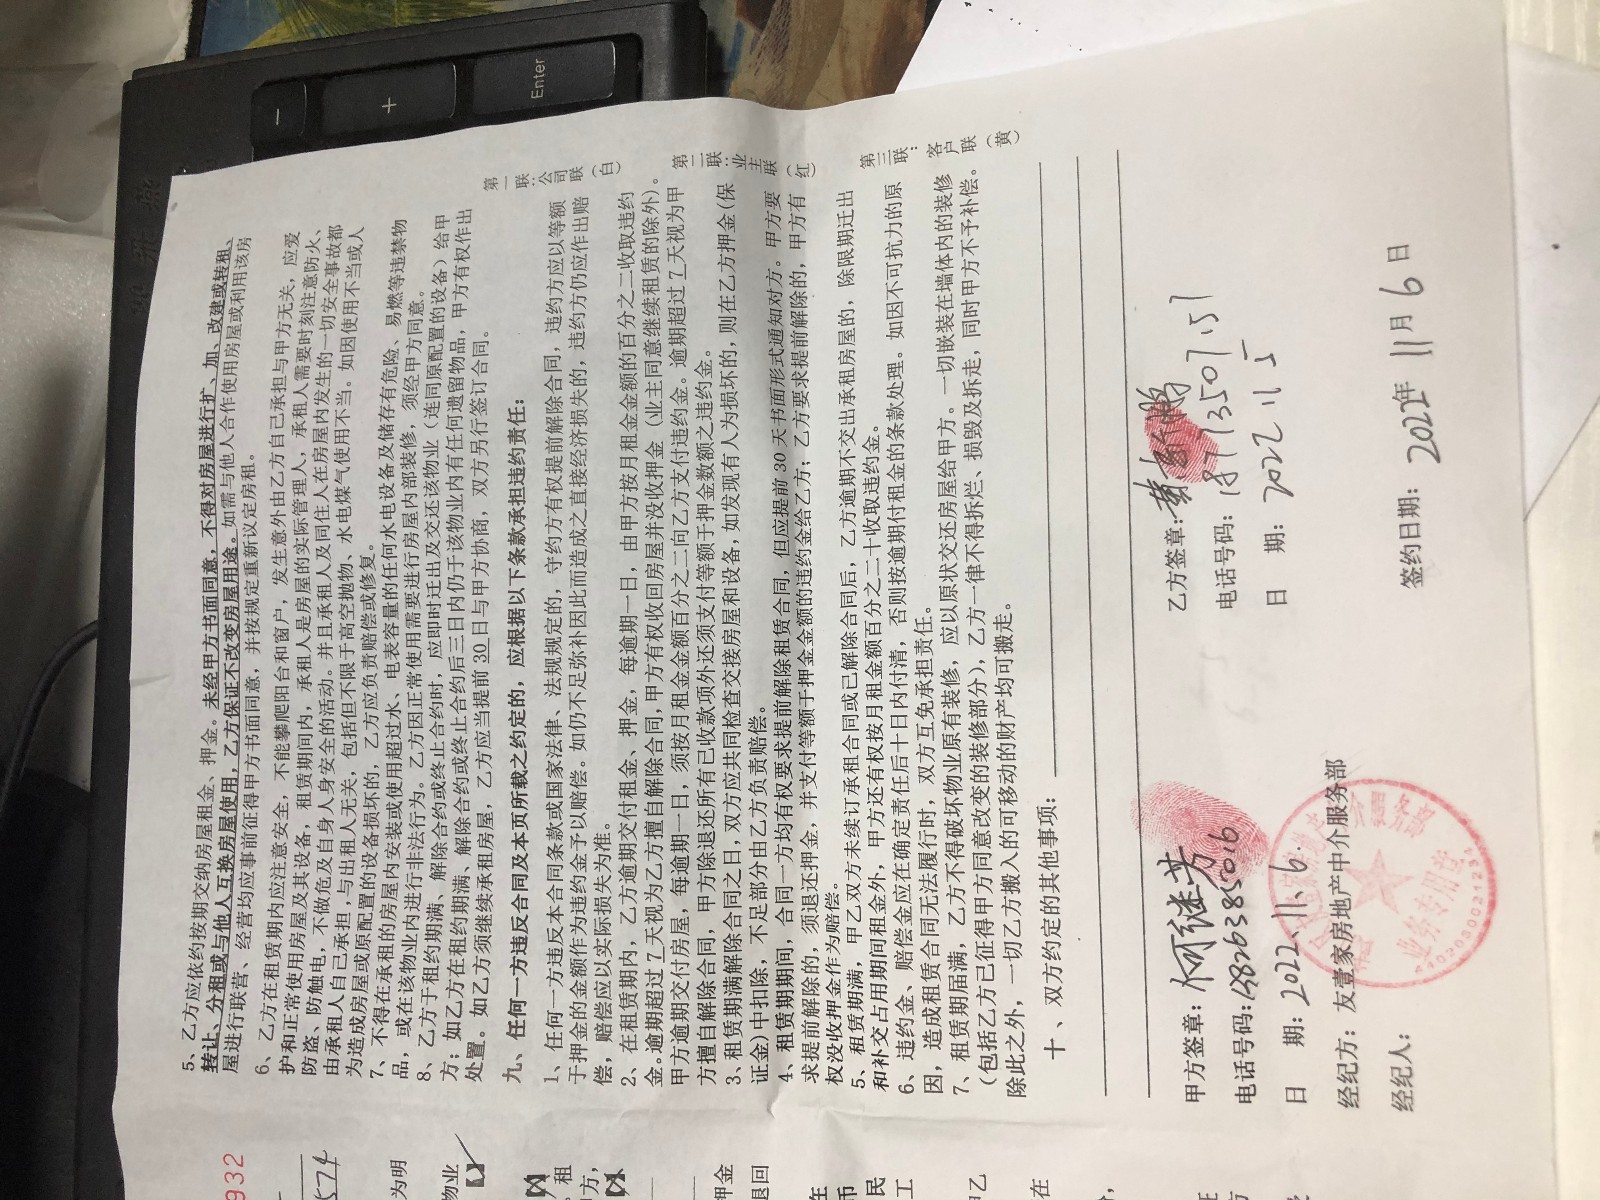 5、乙方应依约按期交纳房屋租金、押金。未经甲方书面同意，不得对房屋进行扩、加、改建或转租、
转让、分租或与他人互换房屋使用，乙方保证不改变房屋用途。如需与他人合作使用房屋或利用该房
屋进行联营、经营均应事前征得甲方书面同意，并按规定重新议定房租。
6、乙方在租赁期内应注意安全，不能攀爬阳台和窗户，发生意外由乙方自己承担与甲方无关，应爱
护和正常使用房屋及其设备，租赁期间内，承租人是房屋的实际管理人，承租人需要时刻注意防火、
防盗、防触电，不做危及自身人身安全的活动。并且承租人及同住人在房屋内发生的一切安全事故都
由承租人自己承担，与出租人无关，包括但不限于高空抛物、水电煤气使用不当。如因使用不当或人
为造成房屋或原配置的设备损坏的，乙方应负责赔偿或修复。
7、不得在承租的房屋内安装或使用超过水、电表容量的任何水电设备及储存有危险、易燃等违禁物
品，或在该物业内进行非法行为。乙方因正常使用需要进行房屋内部装修，须经甲方同意。
8、乙方于租约期满、解除合约或终止合约时，应即时迁出及交还该物业（连同原配置的设备）给甲
方；如乙方在租约期满、解除合约或终止合约后三日内仍于该物业内有任何遗留物品，甲方有权作出
处置。如乙方须继续承租房屋，乙方应当提前30日与甲方协商，双方另行签订合同。
九、任何一方违反合同及本页所载之约定的，应根据以下条款承担违约责任：
1、任何一方违反本合同条款或国家法律、法规规定的，守约方有权提前解除合同，违约方应以等额
于押金的金额作为违约金予以赔偿。如仍不足弥补因此而造成之直接经济损失的，违约方仍应作出赔
偿，赔偿应以实际损失为准。
2、在租赁期内，乙方逾期交付租金、押金，每逾期一日，由甲方按月租金金额的百分之二收取违约
金。逾期超过7天视为乙方擅自解除合同，甲方有权收回房屋并没收押金（业主同意继续租赁的除外）。
甲方逾期交付房屋，每逾期一日，须按月租金金额百分之二向乙方支付违约金。逾期超过7天视为甲
方擅自解除合同，甲方除退还所有已收款项外还须支付等额于押金数额之违约金。
3、租赁期满解除合同之日，双方应共同检查交接房屋和设备，如发现有人为损坏的，则在乙方押金（保
证金）中扣除，不足部分由乙方负责赔偿。
4、租赁期期间，合同一方均有权要求提前解除租赁合同，但应提前30天书面形式通知对方。甲方要
求提前解除的，须退还押金，并支付等额于押金金额的违约金给乙方；乙方要求提前解除的，甲方有
权没收押金作为赔偿。
5、租赁期满，甲乙双方未续订承租合同或已解除合同后，乙方逾期不交出承租房屋的，除限期迁出
和补交占用期间租金外，甲方还有权按月租金额百分之二十收取违约金。
6、违约金、赔偿金应在确定责任后十日内付清，否则按逾期付租金的条款处理。如因不可抗力的原
因，造成租赁合同无法履行时，双方互免承担责任。
7、租赁期届满，乙方不得破坏物业原有装修，应以原状交还房屋给甲方。一切嵌装在墙体内的装修
（包括乙方已征得甲方同意改变的装修部分），乙方一律不得拆烂、损毁及拆走，同时甲方不予补偿。
除此之外，一切乙方搬入的可移动的财产均可搬走。
十、双方约定的其他事项：
第一联：公司联（白）
第二联：业主联（红）
第三联：客户联（黄）
甲方签章：何继芳
电话号码：13826385016
日 期：2022.11.6.
经纪方：友壹家房地产中介服务部
经纪人：
业务专用章
乙方签章：
电话号码：
日 期：2022 11 5
签约日期：2022年11月6日
932
574
为明
物业
租
方，
押金
退回